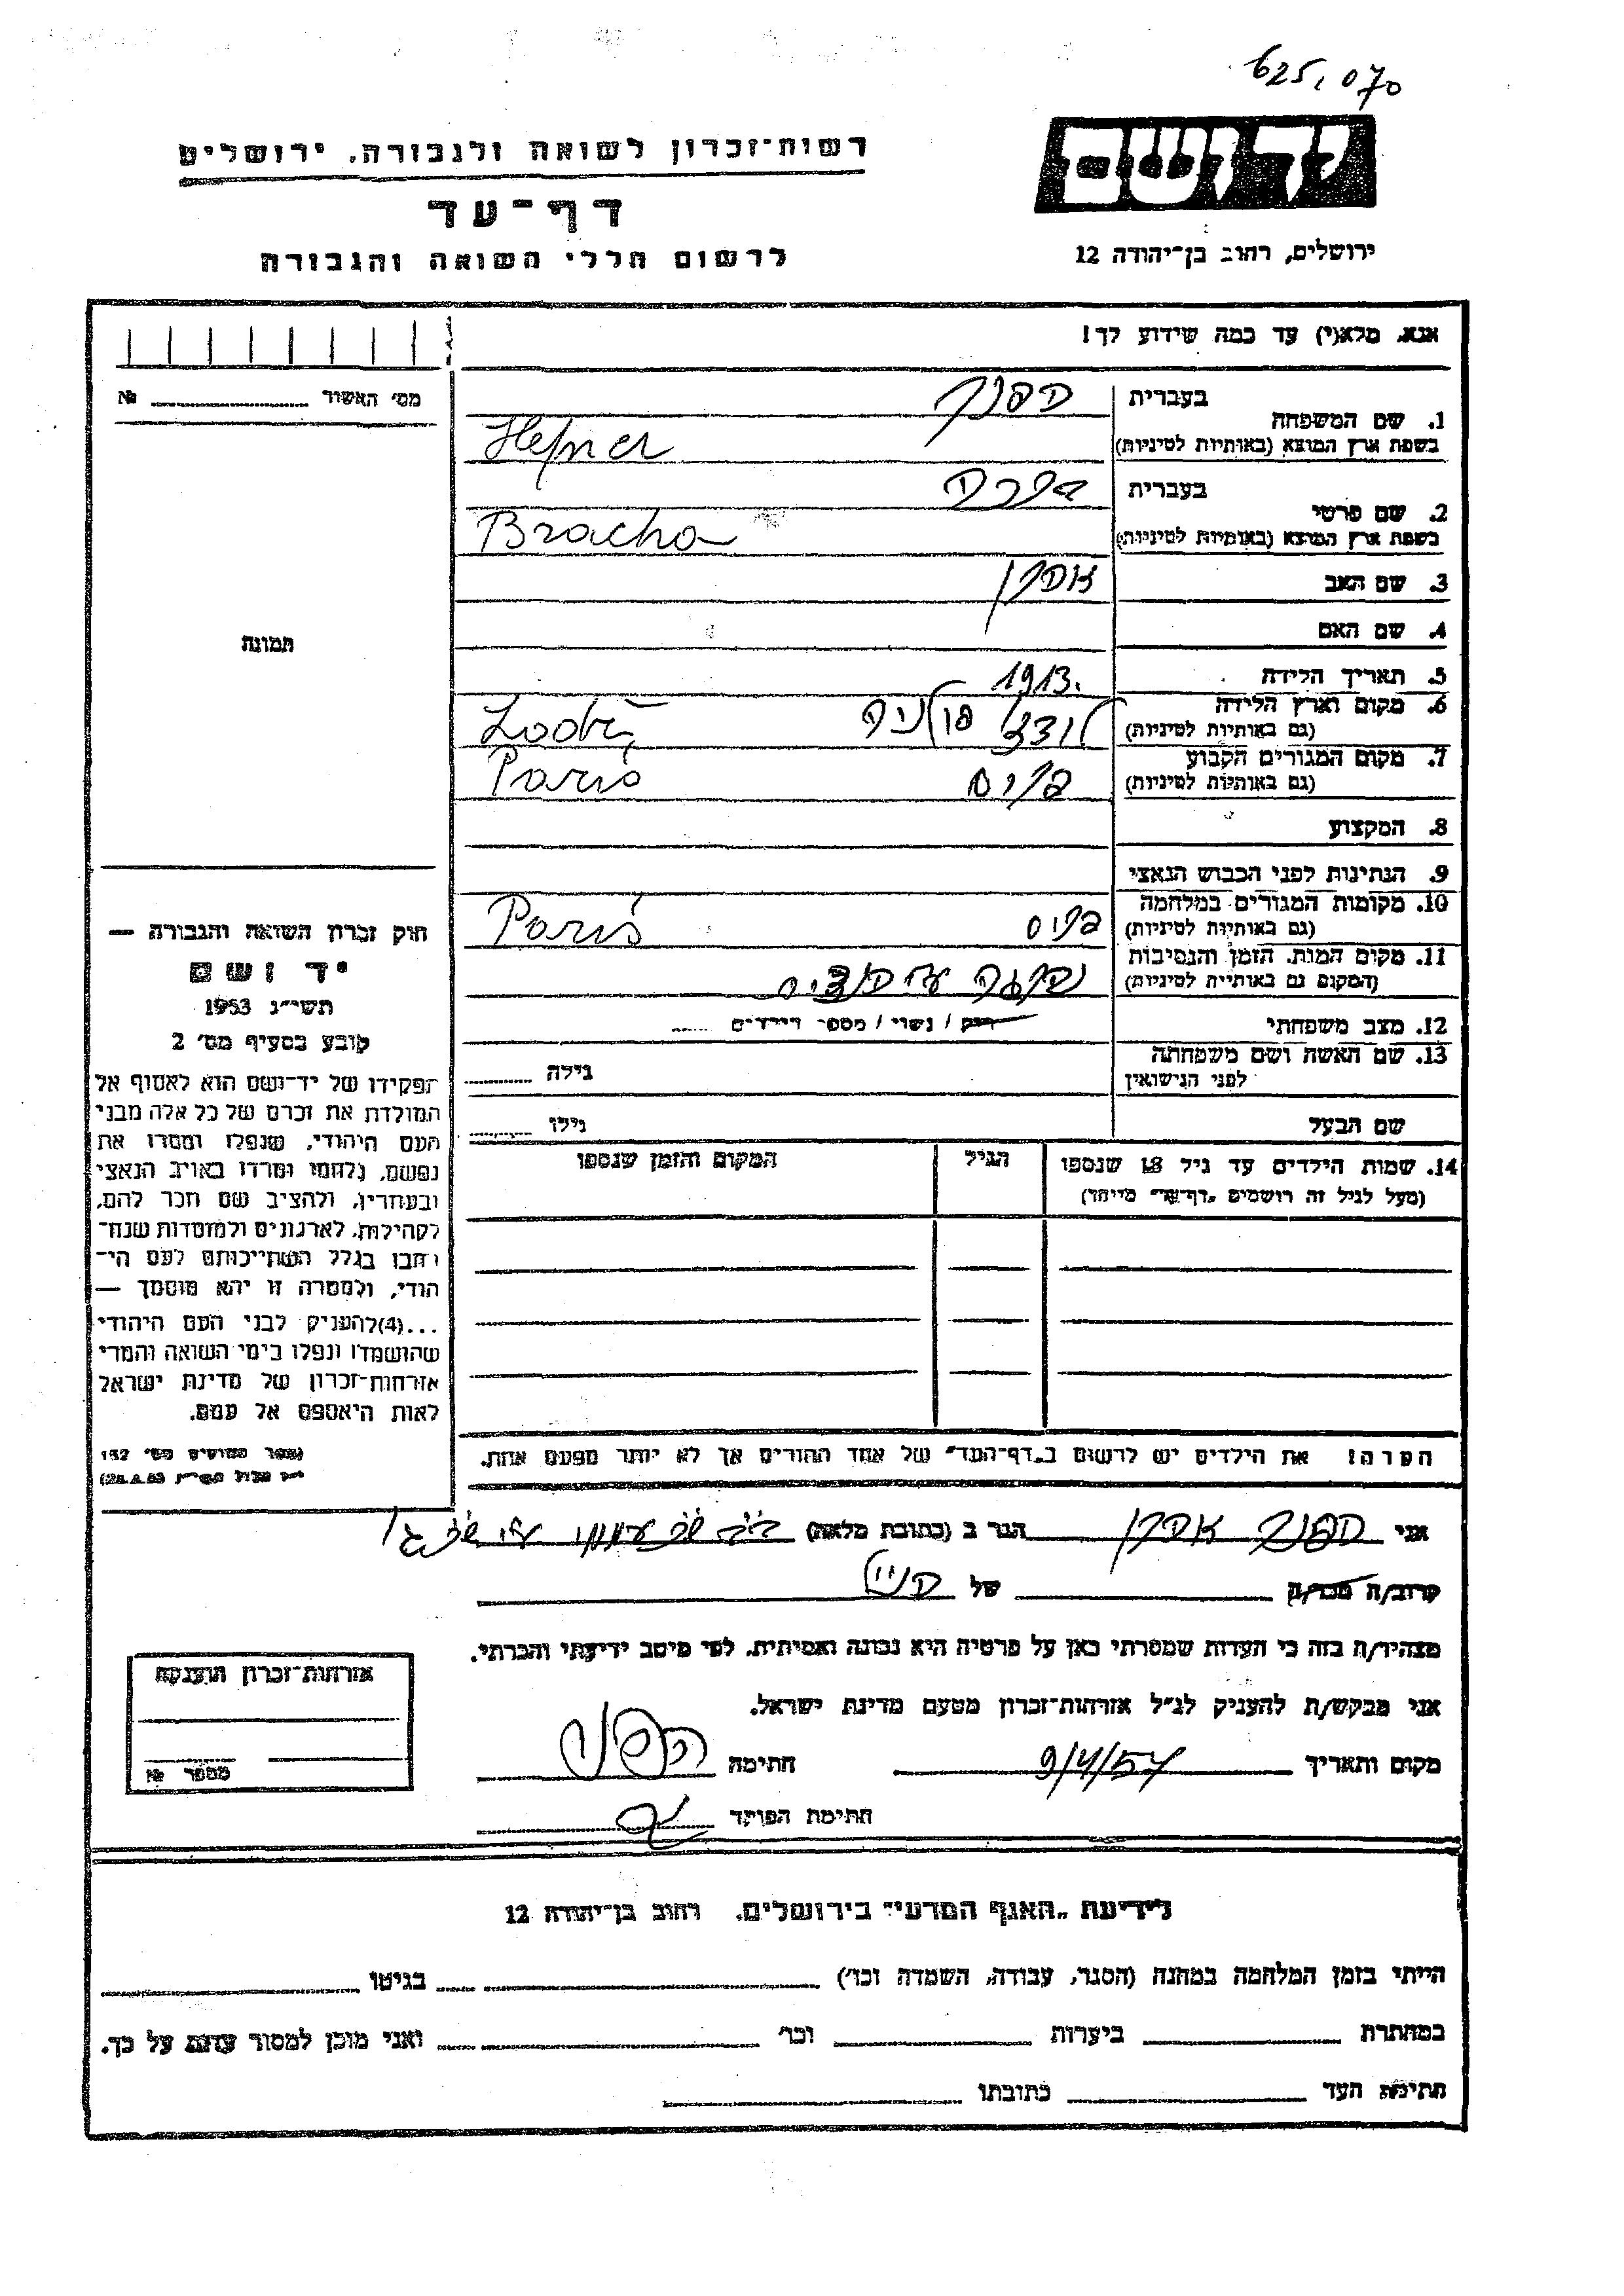 625.070
יד ושם
רשות־זכרון לשואה ולגבורה, ירושלים
דף־עד
לרשום חללי השואה והגבורה
ירושלים, רחוב בן־יהודה 12
אנא, מלא(י) עד כמה שידוע לך!
מס׳ האשור № 
1. שם המשפחה
בעברית הפנר
בשפת ארץ המוצא (באותיות לטיניות) Hefner
2. שם פרטי
בעברית ברכה
בשפת ארץ המוצא (באותיות לטיניות) Bracha
3. שם האב אהרן
4. שם האם
5. תאריך הלידה 1913.
6. מקום וארץ הלידה לודז׳ פולניה
(גם באותיות לטיניות) Lodź,
7. מקום המגורים הקבוע פריס
(גם באותיות לטיניות) Paris
8. המקצוע
9. הנתינות לפני הכבוש הנאצי
10. מקומות המגורים במלחמה פריס
(גם באותיות לטיניות) Paris
11. מקום המות, הזמן והנסיבות
(המקום גם באותיות לטיניות)
12. מצב משפחתי רוק / נשוי / מספר הילדים
13. שם האשה ושם משפחתה
לפני הנישואין
גילה
שם הבעל
גילו
14. שמות הילדים עד גיל 18 שנספו
(מעל לגיל זה רושמים „דף־עד״ מיוחד)
הגיל
המקום והזמן שנספו
הערה! את הילדים יש לרשום ב„דף־העד״ של אחד ההורים אך לא יותר מפעם אחת.
תמונה
חוק זכרון השואה והגבורה —
יד ושם
תשי״ג 1953
קובע בסעיף מס׳ 2
תפקידו של יד־ושם הוא לאסוף אל
המולדת את זכרם של כל אלה מבני
העם היהודי, שנפלו ומסרו את
נפשם, נלחמו ומרדו באויב הנאצי
ובעוזריו, ולהציב שם וזכר להם,
לקהילות, לארגונים ולמוסדות שנח־
רבו בגלל השתייכותם לעם הי־
הודי, ולמטרה זו יהא מוסמך —
...(4) להעניק לבני העם היהודי
שהושמדו ונפלו בימי השואה והמרי
אזרחות־זכרון של מדינת ישראל
לאות היאספם אל עמם.
אני הפנר אהרן הגר ב (כתובת מלאה)
קרוב/ה מכר/ה של
מצהיר/ה בזה כי העדות שמסרתי כאן על פרטיה היא נכונה ואמיתית, לפי מיטב ידיעתי והכרתי.
אני מבקש/ת להעניק לנ״ל אזרחות־זכרון מטעם מדינת ישראל.
מקום ותאריך 9/4/57 חתימה
חתימת הפוקד
אזרחות־זכרון הוענקה
מספר №
לידיעת „האגף המדעי״ בירושלים, רחוב בן־יהודה 12
הייתי בזמן המלחמה במחנה (הסגר, עבודה, השמדה וכו׳) בגיטו
במחתרת ביערות וכו׳ ואני מוכן למסור עדות על כך.
חתימת העד כתובתו